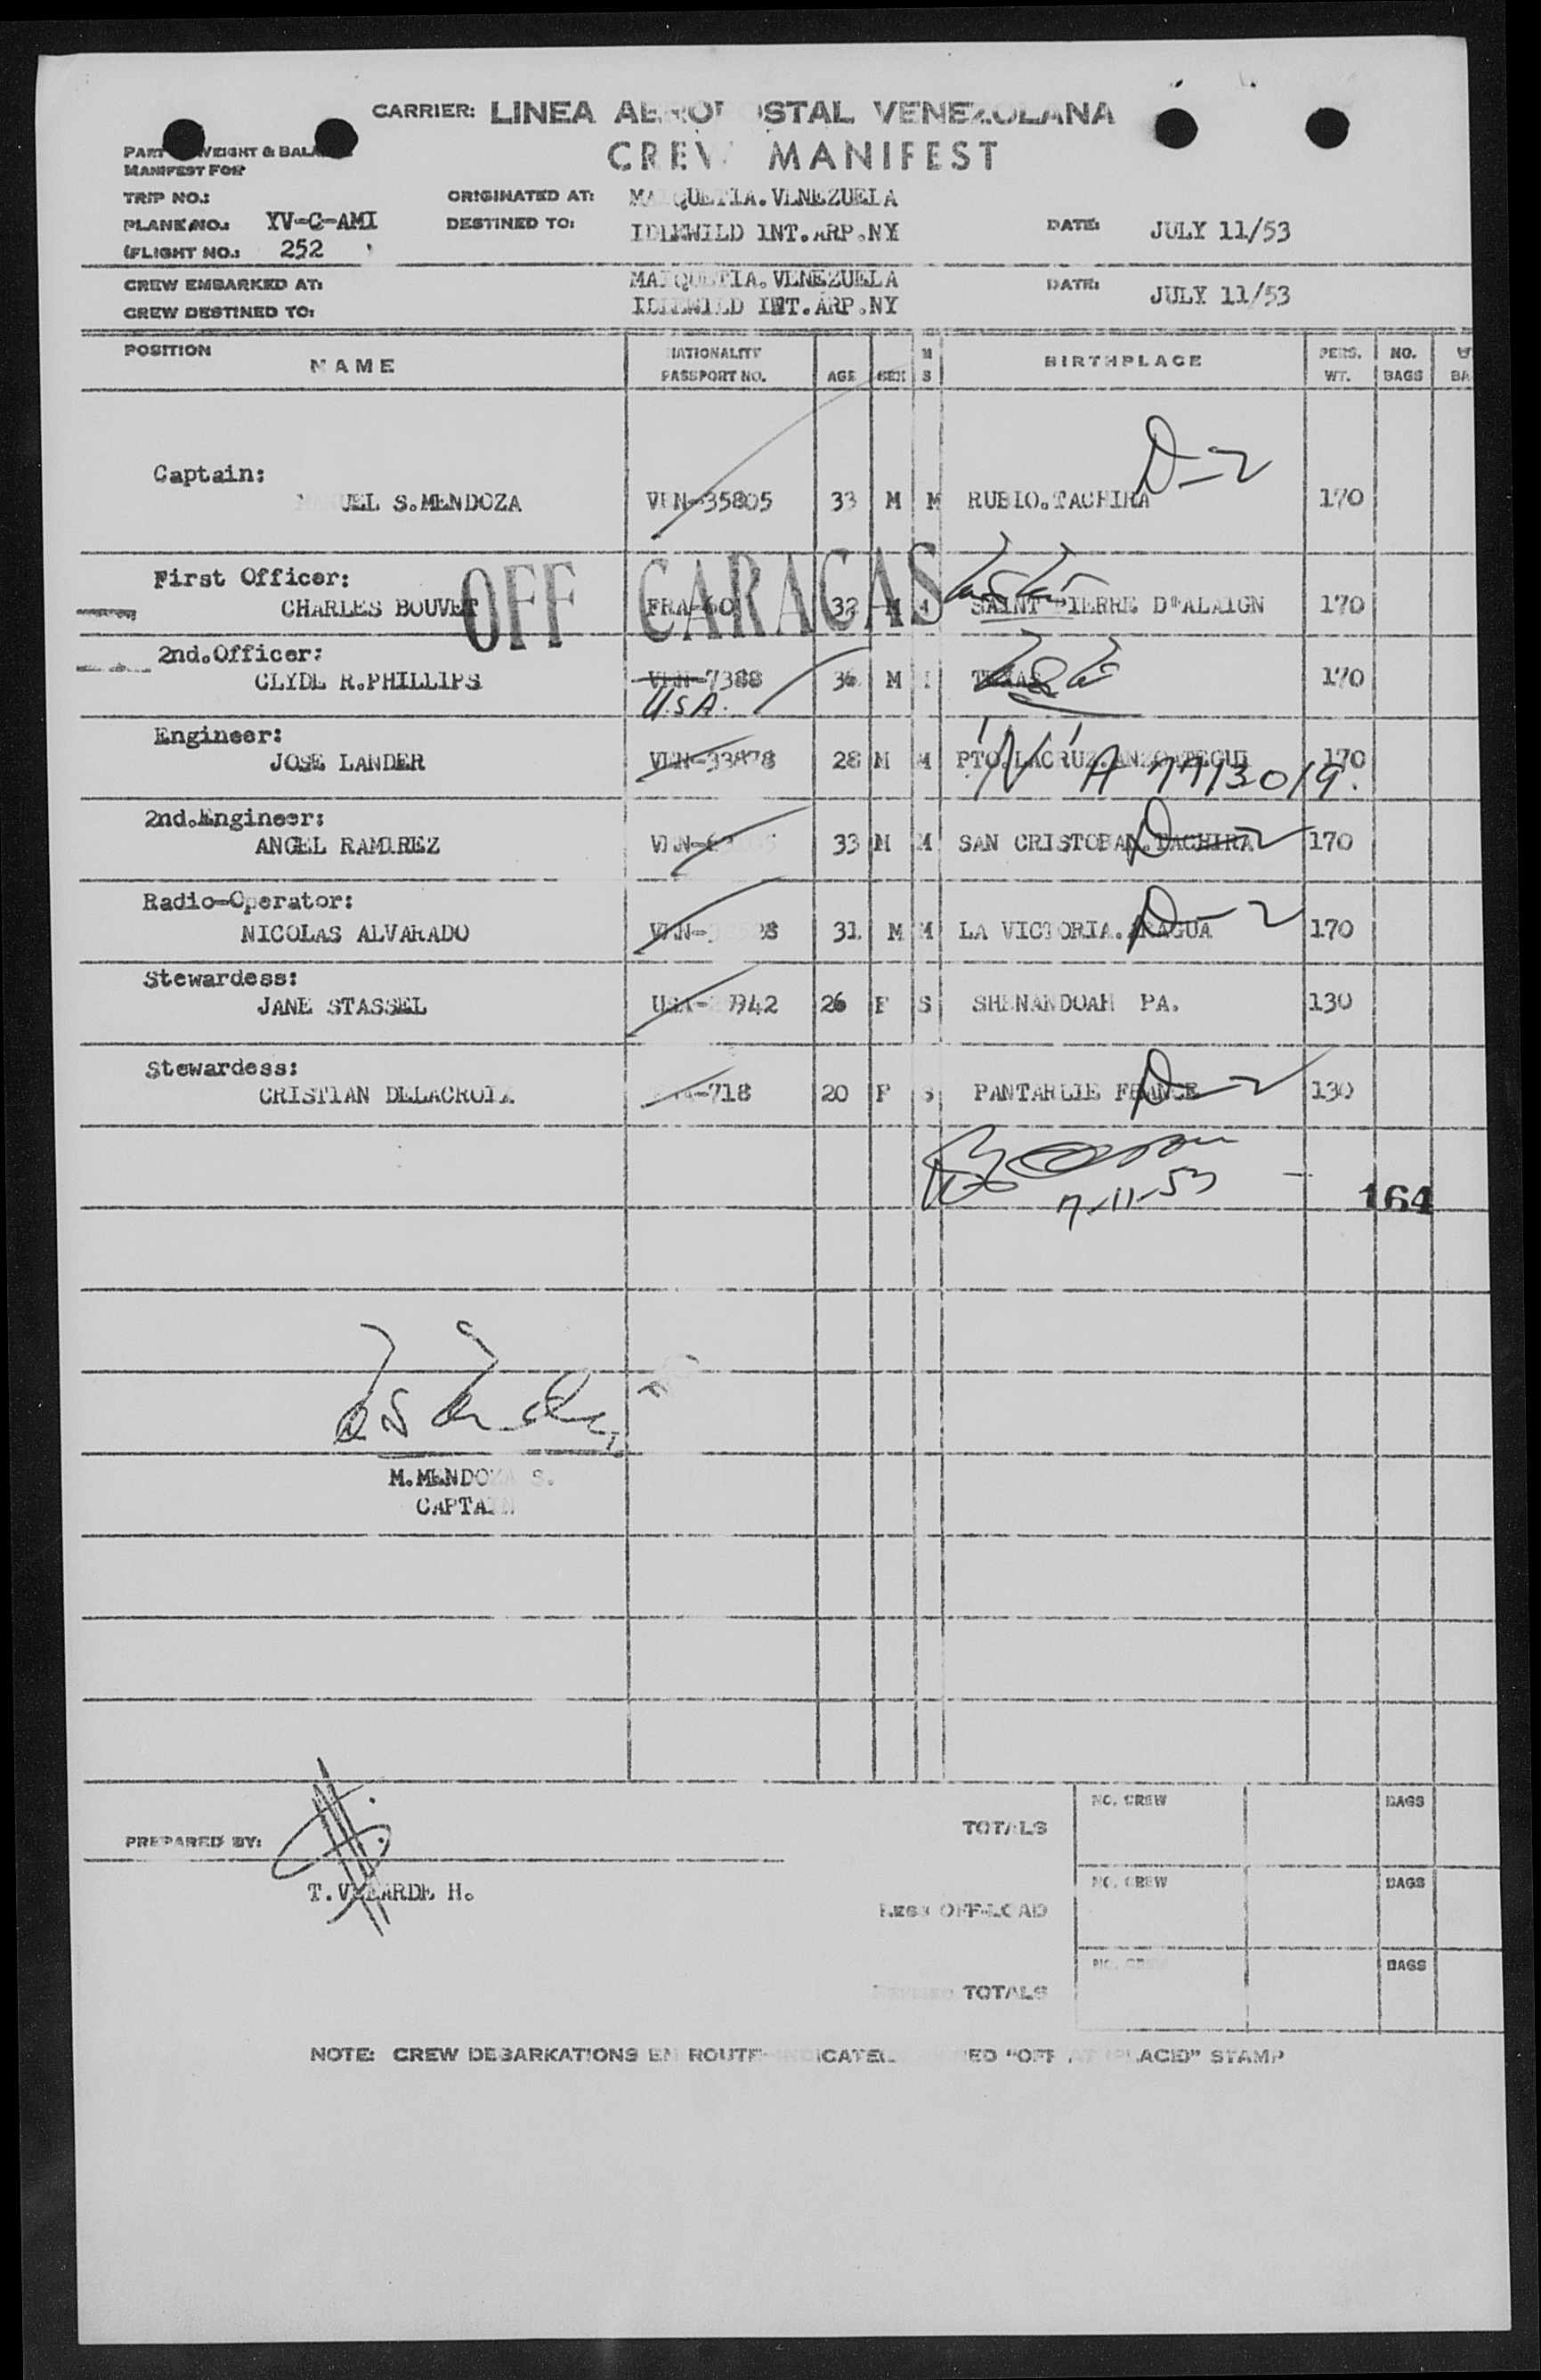 CARRIER: LINEA AEROPOSTAL VENEZOLANA
CREW MANIFEST
PART WEIGHT & BALANCE
MANIFEST FOR
TRIP NO.: ORIGINATED AT: MAIQUETIA.VENEZUELA
PLANE NO.: YV-C-AMI DESTINED TO: IDLEWILD INT.ARP.NY DATE: JULY 11/53
FLIGHT NO.: 252
CREW EMBARKED AT: MAIQUETIA.VENEZUELA DATE: JULY 11/53
CREW DESTINED TO: IDLEWILD INT.ARP.NY
POSITION NAME NATIONALITY PASSPORT NO. AGE SEX M S BIRTHPLACE PERS. WT. NO. BAGS
Captain: D-2
MANUEL S.MENDOZA VEN-35805 33 M M RUBIO.TACHIRA 170
First Officer: OFF CARACAS
CHARLES BOUVET 170
SAINT PIERRE D'ALAIGN
2nd.Officer:
CLYDE R.PHILLIPS VEN-7388 36 M TEXAS 170
U.S.A.
Engineer:
JOSE LANDER VEN-33878 28 M M PTO.LACRUZ.ANZOATEGUI 170
2nd.Engineer:
ANGEL RAMIREZ 33 M M SAN CRISTOBAL.TACHIRA D-2 170
Radio-Operator:
NICOLAS ALVARADO 31 M M LA VICTORIA.ARAGUA D-2 170
Stewardess:
JANE STASSEL 26 F S SHENANDOAH PA. 130
Stewardess:
CRISTIAN DELACROIX -718 20 F S PANTARLIE FRANCE D-2 130
7-11-53
164
M.MENDOZA S.
CAPTAIN
NO. CREW BAGS
TOTALS
PREPARED BY:
NO. CREW BAGS
T.VELARDE H.
LESS OFF-LOAD
NO. CREW BAGS
TOTALS
NOTE: CREW DEBARKATIONS EN ROUTE INDICATED "OFF AT (PLACE)" STAMP